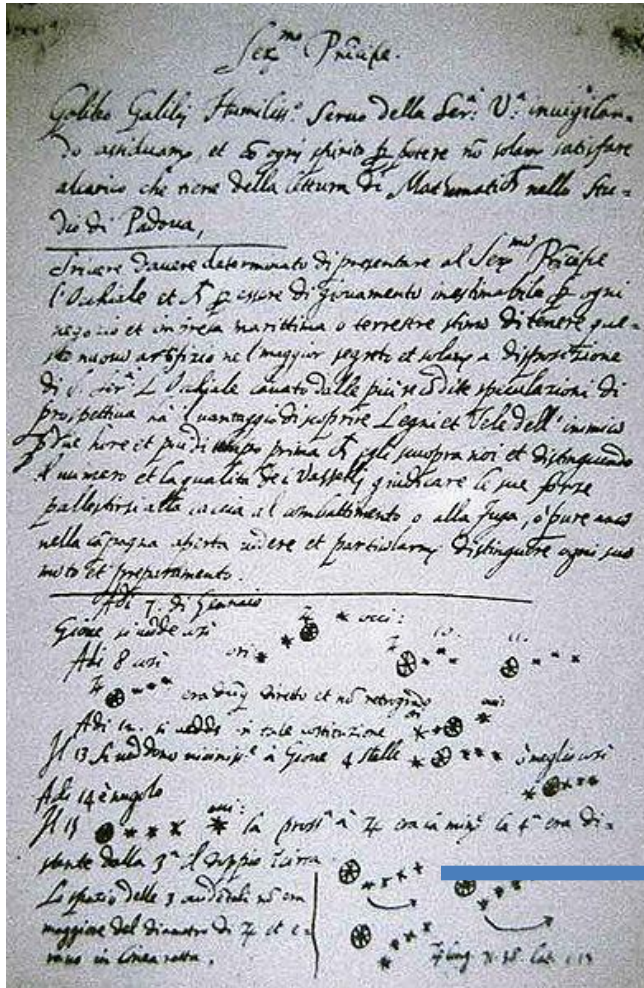 Ser.mo Prīcipe.
Galileo Galilej Humiliss.o Seruo della Ser: V: inuigilan-
do assiduam.e, et cō ogni spirito p potere nō solam satisfare
alcarico che tiene della lettura di Mathematich nello Stu-
dio di Padoua,
Scriuere dauere determinato di presentare al Ser.mo Prīcipe
l'Occhiale et p essere di giouamento inestimabile p ogni
negozio et impresa marittima o terrestre stimo di tenere que-
sto nuouo artifizio nel maggior segreto et solam a disposizione
di S. Ser: L'Occhiale cauato dalle più recōdite speculazioni di
prospettiua hà il vantaggio di scoprire Legni et Vele dell'inimico
p due hore et più di tempo prima egli scuopra noi et distinguendo
il numero et la qualità dei Vasselli giudicare le sue forze
pallestirsi alla caccia al combattimento o alla fuga, ò pure anco
nella cāpagna aperta uidere et particolarm distinguere ogni suo
moto et preparamento.
Adi 7. di Gennaio
Gione si uedde così occi:
Adi 8 così ori 10. 11.
era dūq diretto et nō retrogrado
Adi 12. si uedde in tale costituzione
Il 13 si ueddono à Gioue 4 stelle ò meglio così
Adi 14 è nugolo
Il 15 la pross.a à era la la 4.a era di-
stante dalla 3.a il doppio
Lo spatio delle 3 nō era
maggiore del diametro di et e-
rano in linea retta.
long. 71. 38. Lat. 1. 13